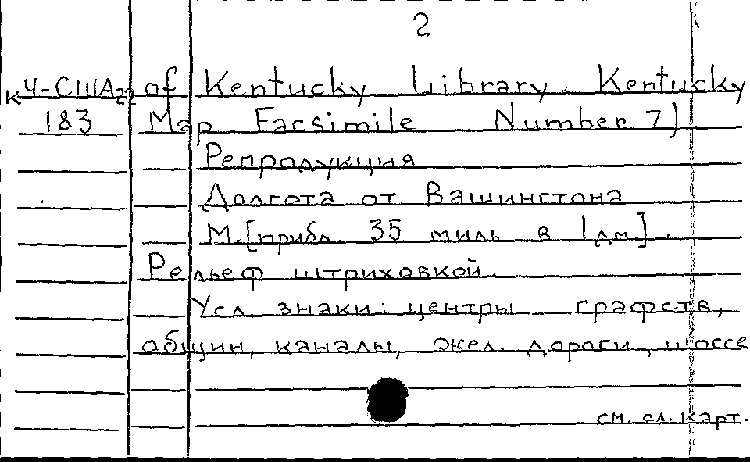 2
К Ч-США22 of Kentucky Library Kentucky
183 Map Facsimile Number 7)
Репродукция
Долгота от Вашингтона
М.[прибл. 35 миль в 1 дм].
Рельеф штриховкой.
Усл. знаки: центры графств,
общин, каналы, жел. дороги, шоссе
см. сл. карт.